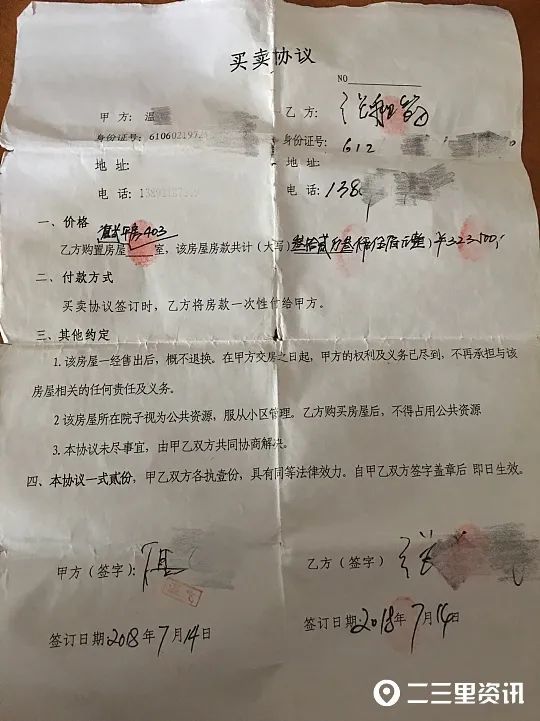 买卖协议
NO
甲 方：温
乙 方：
身份证号：61060219724
身份证号：612
地 址：
地 址：
电 话：
电 话：138
一、价格
平房403
乙方购置房屋 室，该房屋房款共计（大写）叁拾贰万叁仟伍佰元整）￥323500.
二、付款方式
买卖协议签订时，乙方将房款一次性付给甲方。
三、其他约定
1.该房屋一经售出后，概不退换。在甲方交房之日起，甲方的权利及义务已尽到，不再承担与该
房屋相关的任何责任及义务。
2 该房屋所在院子视为公共资源，服从小区管理。乙方购买房屋后，不得占用公共资源
3.本协议未尽事宜，由甲乙双方共同协商解决。
四、本协议一式贰份，甲乙双方各执壹份，具有同等法律效力。自甲乙双方签字盖章后 即日生效。
甲方（签字）：温
乙方（签字）
签订日期2018年7月14日
签订日期：2018年7月14日
二三里资讯